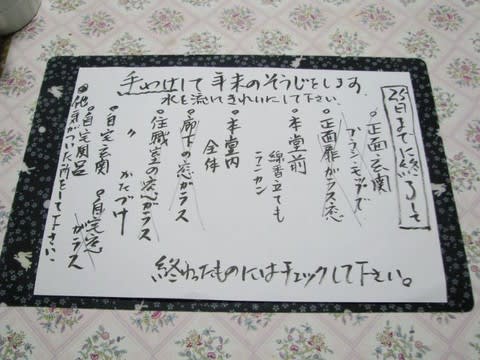 手わけして年末のそうじをします
水も流してきれいにして下さい。
25日までに終了して
。正面玄関
ブラシ・モップで
。正面扉ガラス窓
。本堂前
線香立ても
アンカン
。本堂内
全体
。廊下の窓ガラス
。住職室の窓ガラス
〃 かたづけ
。自宅玄関
。自宅窓
ガラス
。自宅風呂
。他気がついた所をして下さい
終わったものにはチェックして下さい。